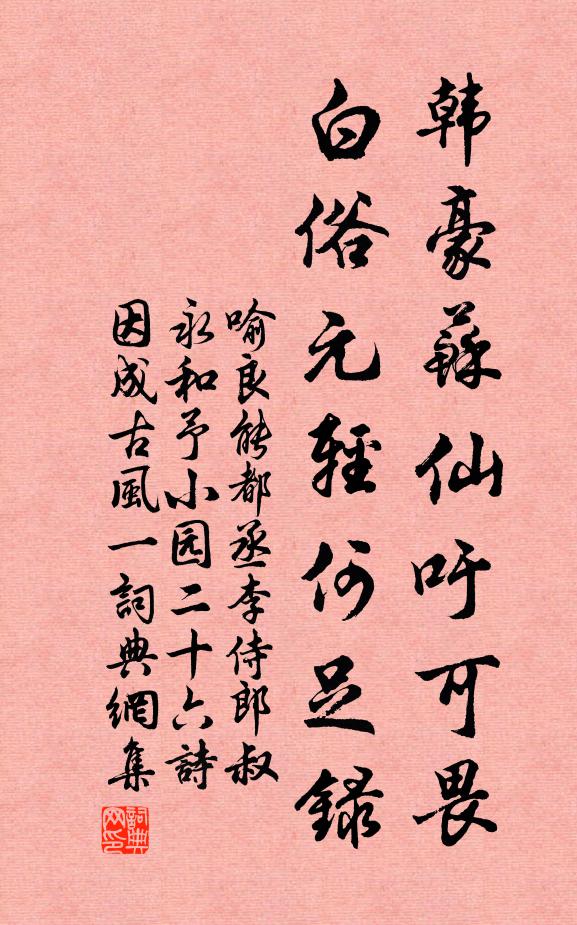 韩豪蘇仙吁可畏
白俗元輕何足錄
喻良能都丞李侍郎叔
永和予小园二十六詩
因成古風一詞典網集
詞典
网印